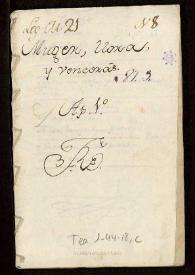 Leg. 21 N 8
Muger, llora,
y venceras.
Ap. 1º
Tea 1-44-18, c